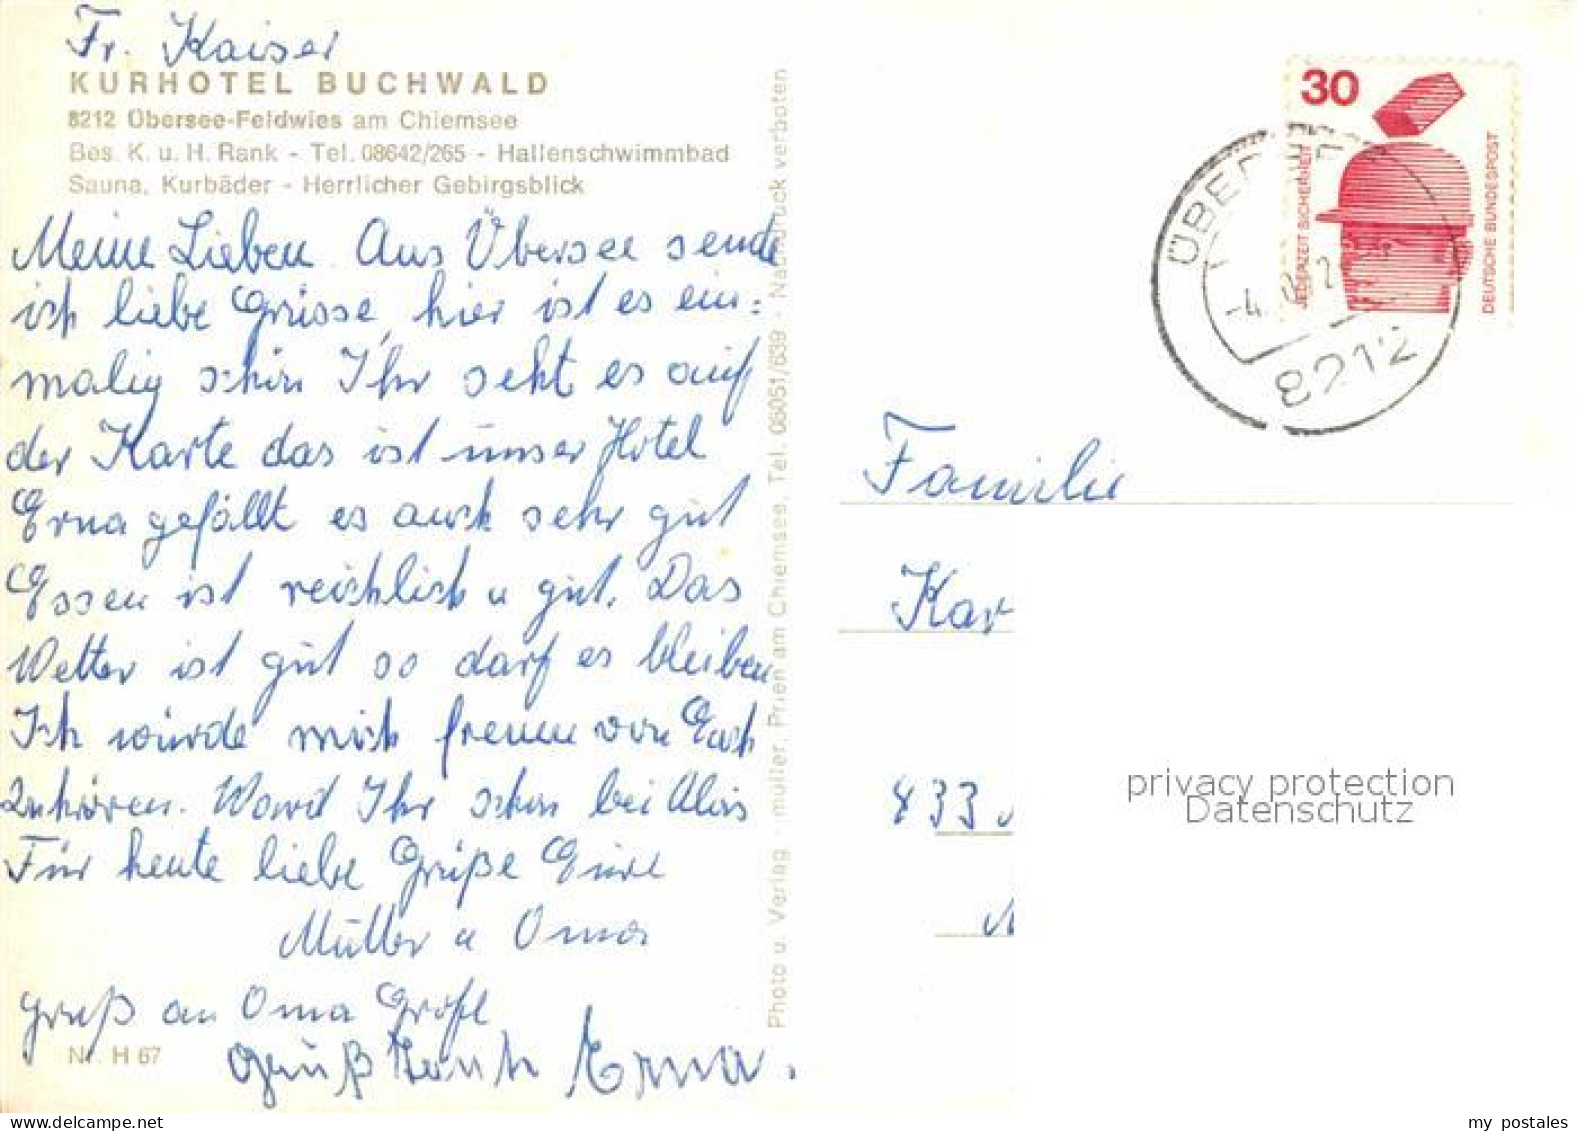 Fr. Kaiser
KURHOTEL BUCHWALD
8212 Übersee-Feldwies am Chiemsee
Bes. K. u. H. Rank - Tel. 08642/265 - Hallenschwimmbad
Sauna, Kurbäder - Herrlicher Gebirgsblick
Meine Lieben Aus Übersee sende
ich liebe Grüsse, hier ist es ein=
malig schön Ihr seht es auf
der Karte das ist unser Hotel
Erna gefällt es auch sehr gut
Essen ist reichlich u gut. Das
Wetter ist gut so darf es bleiben
Ich würde mich freuen von Euch
zuhören. Ward Ihr schon bei Alois
Für heute liebe Grüße Eure
Mutter u Oma
Gruß an Oma
Nr. H 67
Gruß Erna.
Photo u. Verlag - müller, Prien am Chiemsee, Tel. 08051/639 - Nachdruck verboten
30
JEDERZEIT SICHERHEIT
DEUTSCHE BUNDESPOST
8212
Familie
Kar
833
privacy protection
Datenschutz
my postales